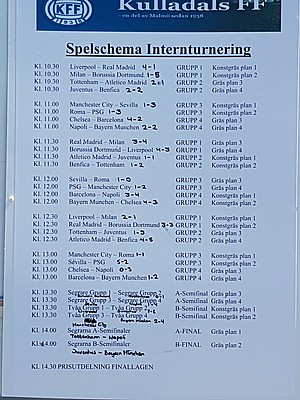 KFF
Kulladals FF
- en del av Malmö sedan 1938
Spelschema Internturnering
Kl. 10.30 Liverpool – Real Madrid 4-1 GRUPP 1 Konstgräs plan 1
Kl. 10.30 Milan – Borussia Dortmund 1-5 GRUPP 1 Konstgräs plan 2
Kl. 10.30 Tottenham – Atletico Madrid 2-1 GRUPP 2 Gräs plan 3
Kl. 10.30 Juventus – Benfica 2-2 GRUPP 2 Gräs plan 4
Kl. 11.00 Manchester City – Sevilla 1-3 GRUPP 3 Konstgräs plan 1
Kl. 11.00 Roma – PSG 1-3 GRUPP 3 Konstgräs plan 2
Kl. 11.00 Chelsea – Barcelona 4-2 GRUPP 4 Gräs plan 3
Kl. 11.00 Napoli – Bayern Munchen 2-2 GRUPP 4 Gräs plan 4
Kl. 11.30 Real Madrid – Milan 3-4 GRUPP 1 Gräs plan 3
Kl. 11.30 Borussia Dortmund – Liverpool 4-3 GRUPP 1 Gräs plan 4
Kl. 11.30 Atletico Madrid – Juventus 1-1 GRUPP 2 Konstgräs plan 1
Kl. 11.30 Benfica – Tottenham 1-2 GRUPP 2 Konstgräs plan 2
Kl. 12.00 Sevilla – Roma 1-0 GRUPP 3 Gräs plan 3
Kl. 12.00 PSG – Manchester City 1-2 GRUPP 3 Gräs plan 4
Kl. 12.00 Barcelona – Napoli 3-4 GRUPP 4 Konstgräs plan 1
Kl. 12.00 Bayern Munchen – Chelsea 4-3 GRUPP 4 Konstgräs plan 2
Kl. 12.30 Liverpool – Milan 2-1 GRUPP 1 Konstgräs plan 1
Kl. 12.30 Real Madrid – Borussia Dortmund GRUPP 1 Konstgräs plan 2
Kl. 12.30 Tottenham – Juventus 1-3 GRUPP 2 Gräs plan 3
Kl. 12.30 Atletico Madrid – Benfica GRUPP 2 Gräs plan 4
Kl. 13.00 Manchester City – Roma 1-1 GRUPP 3 Konstgräs plan 1
Kl. 13.00 Sevilla – PSG 5-2 GRUPP 3 Konstgräs plan 2
Kl. 13.00 Chelsea – Napoli 0-3 GRUPP 4 Gräs plan 3
Kl. 13.00 Barcelona – Bayern Munchen 1-2 GRUPP 4 Gräs plan 4
Kl. 13.30 Segrare Grupp 1 – Segrare Grupp 2 A-Semifinal Gräs plan 3
Kl. 13.30 Segrare Grupp 3 – Segrare Grupp 4 A-Semifinal Gräs plan 4
Kl. 13.30 Tvåa Grupp 1 – Tvåa Grupp 2 B-Semifinal Konstgräs plan 1
Kl. 13.30 Tvåa Grupp 3 – Tvåa Grupp 4 B-Semifinal Konstgräs plan 2
Manchester City Bayern
Kl. 14.00 Segrarna A-Semifinaler A-FINAL Gräs plan 1
Tottenham – Napoli
Kl. 14.00 Segrarna B-Semifinaler B-FINAL Konstgräs plan 2
Juventus – Bayern München
Kl. 14.30 PRISUTDELNING FINALLAGEN